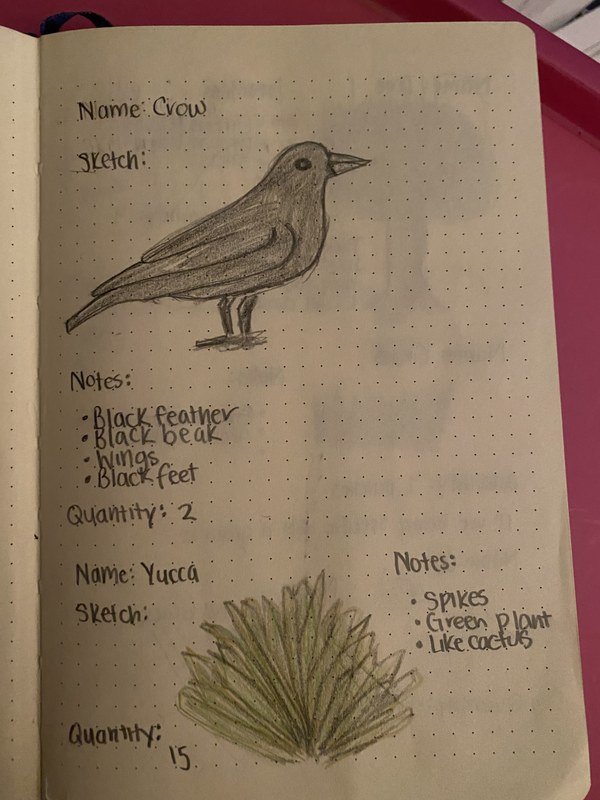 Name: Crow
Sketch:
Notes:
• Black feather
• Black beak
• Wings
• Black feet
Quantity: 2
Name: Yucca
Sketch:
Quantity:
15
Notes:
• Spikes
• Green plant
• Like cactus